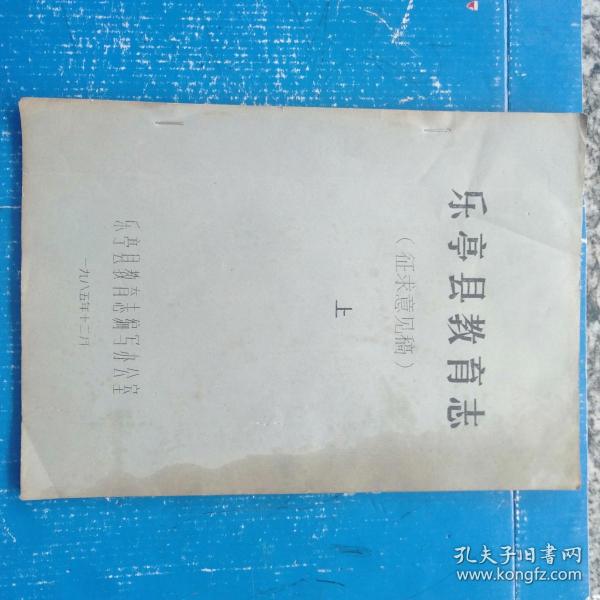 乐亭县教育志
（征求意见稿）
上
乐亭县教育志编写办公室
一九八五年十二月
孔夫子旧书网
www.kongfz.com